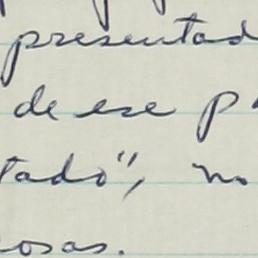 presentad
de ese p
tado", no
osas.